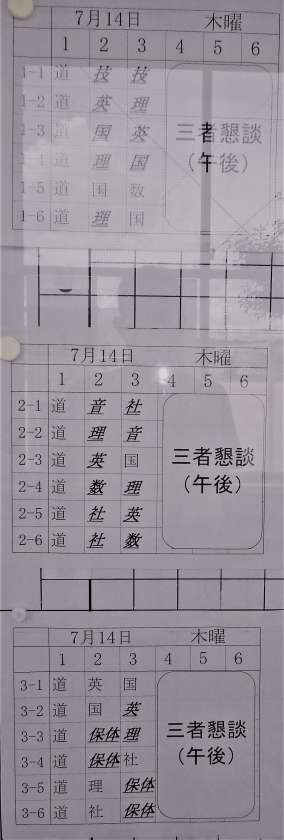 7月14日 木曜
1 2 3 4 5 6
1-1 道 技 技
1-2 道 英 理
1-3 道 国 英
1-4 道 理 国
1-5 道 国 数
1-6 道 理 国
三者懇談
（午後）
7月14日 木曜
1 2 3 4 5 6
2-1 道 音 社
2-2 道 理 音
2-3 道 英 国
2-4 道 数 理
2-5 道 社 英
2-6 道 社 数
三者懇談
（午後）
7月14日 木曜
1 2 3 4 5 6
3-1 道 英 国
3-2 道 国 英
3-3 道 保体 理
3-4 道 保体 社
3-5 道 理 保体
3-6 道 社 保体
三者懇談
（午後）